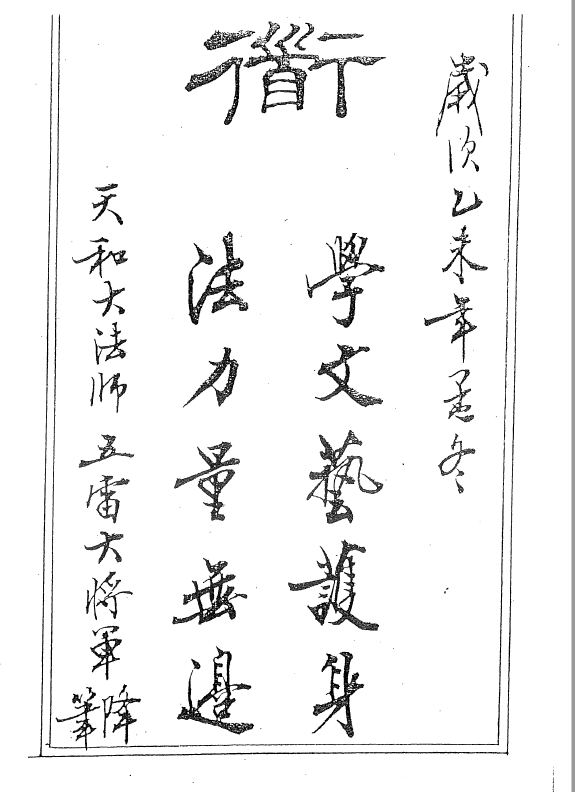 衜
歲次乙未年孟冬
學文藝護身
法力量無邊
天和大法師 五雷大將軍 降筆